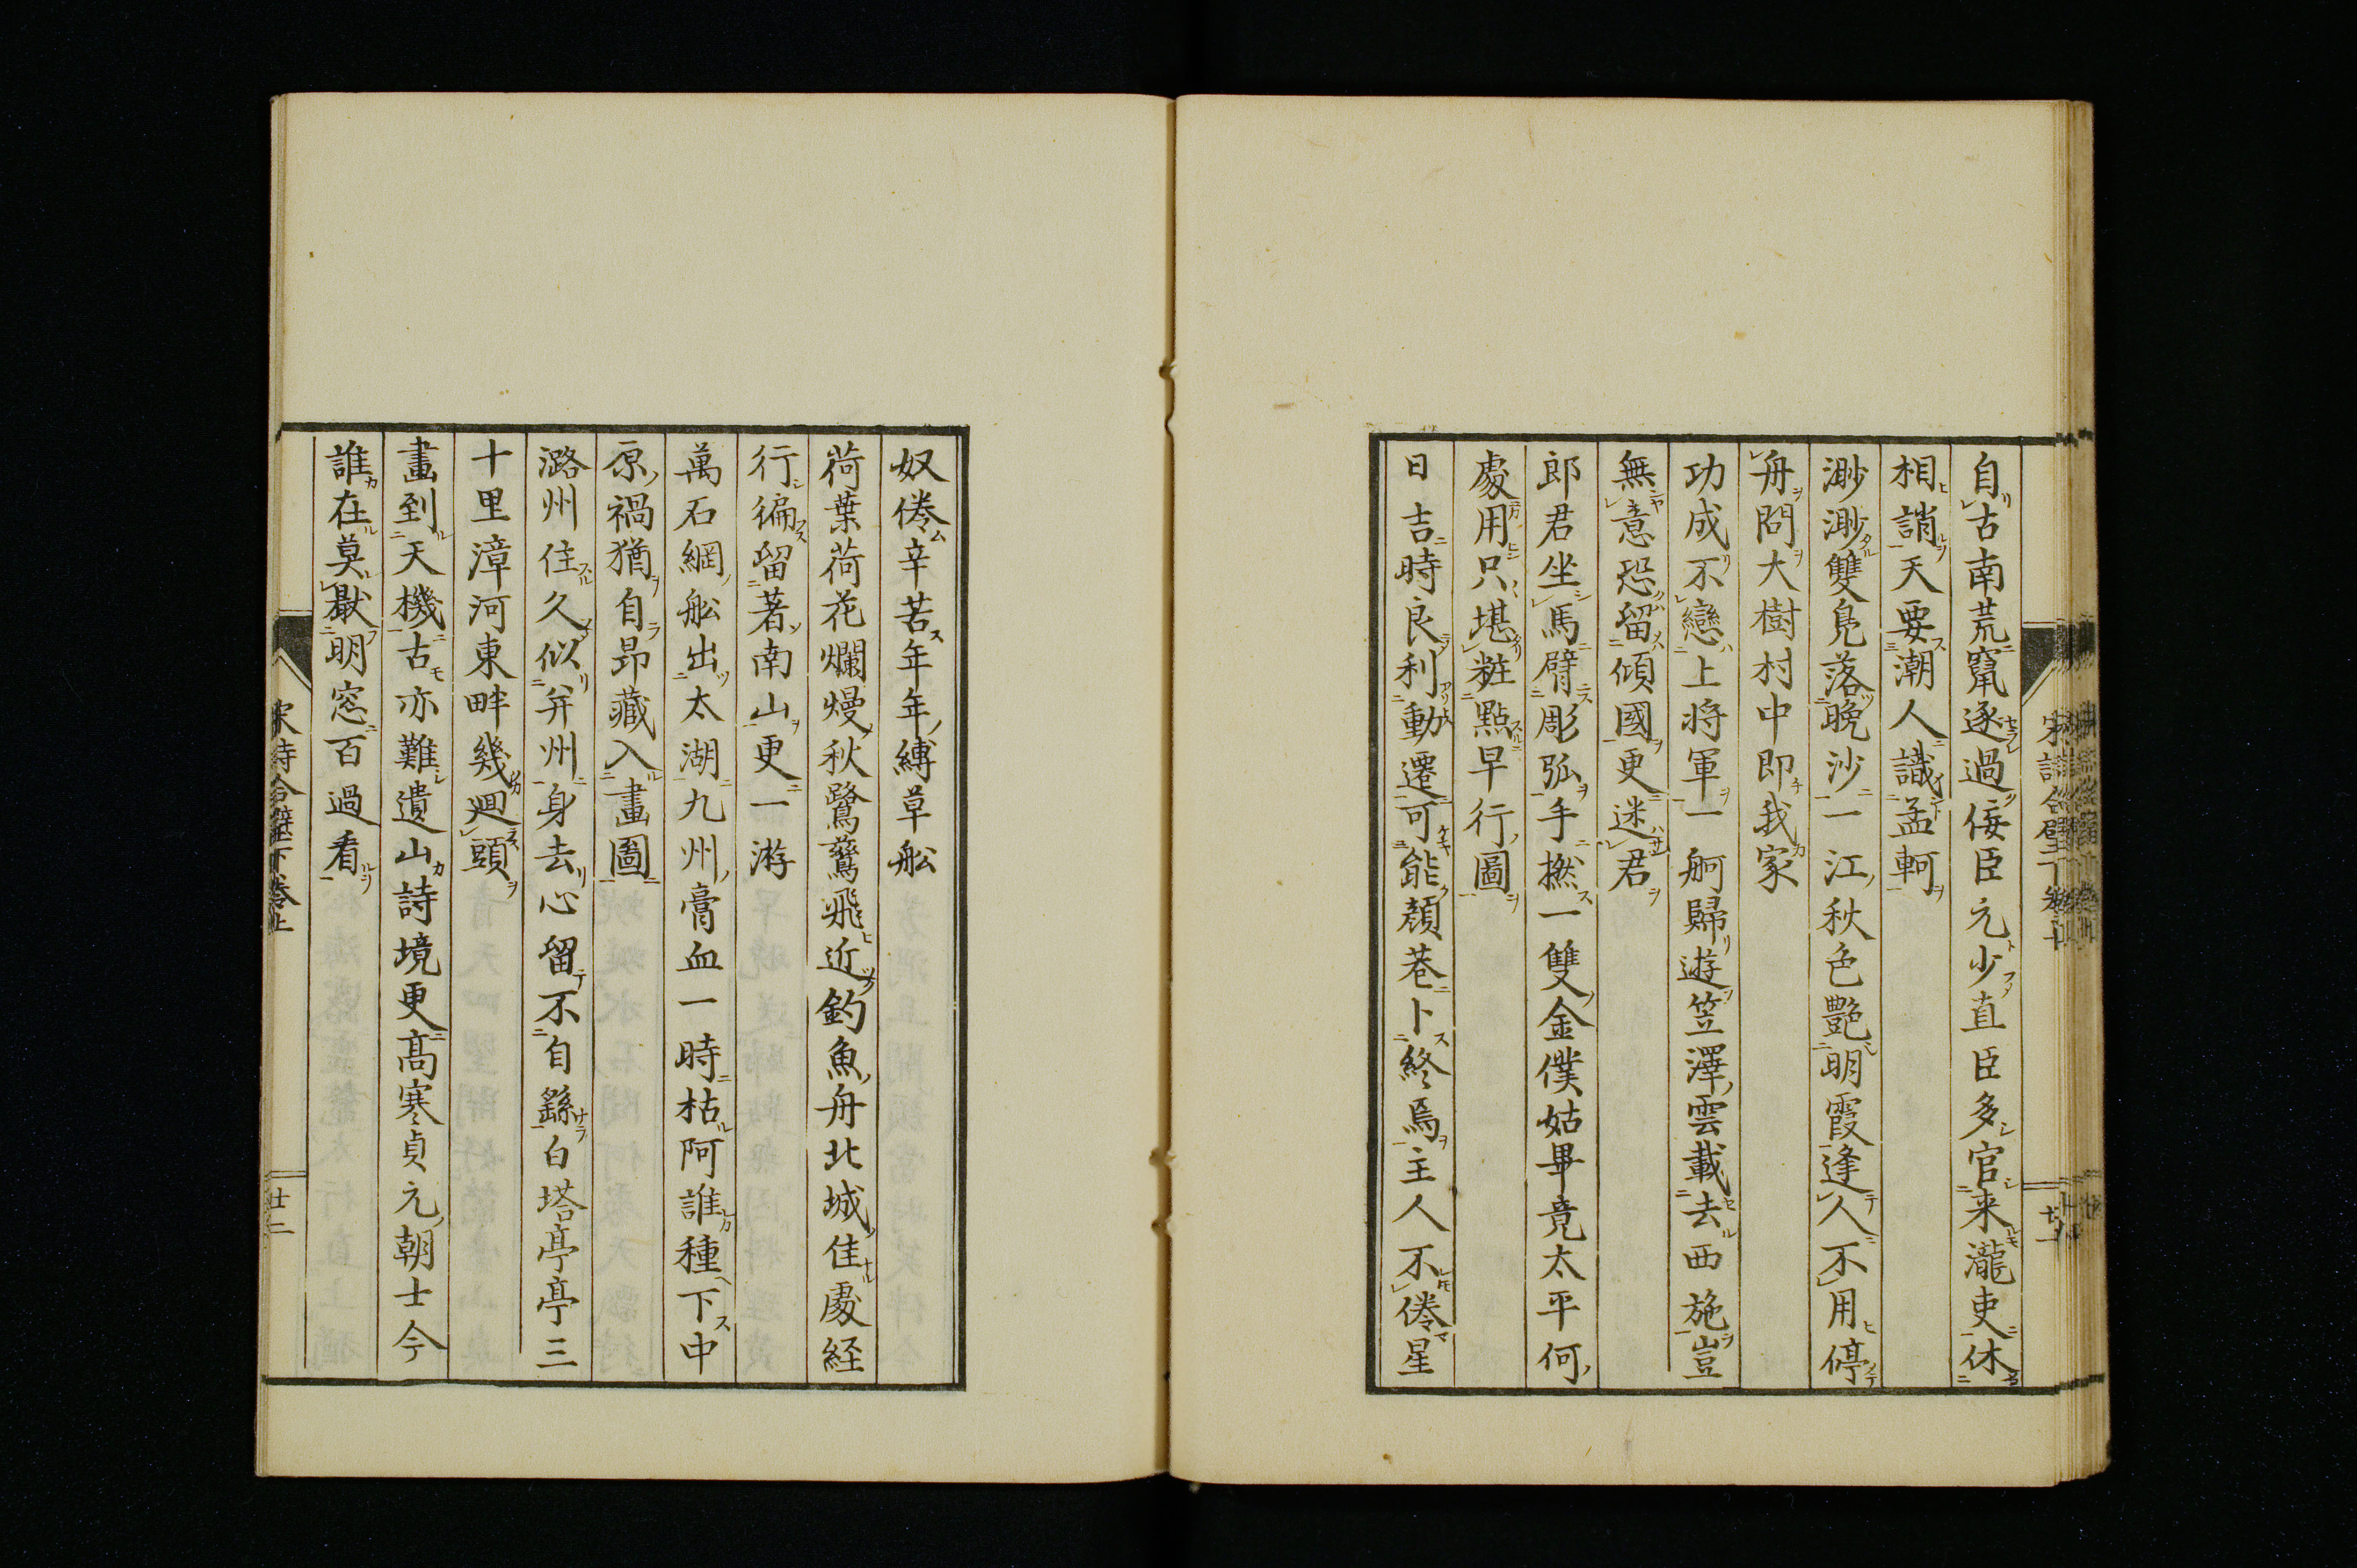 自古南荒竄逐過佞臣元少直臣多官来瀧吏休
相誚天要潮人識孟軻
渺渺雙鳧落晩沙一江秋色艷明霞逢人不用停
舟問大樹村中即我家
功成不戀上将軍一舸歸遊笠澤雲載去西施豈
無意恐留傾國更迷君
郎君坐馬臂彫弧手撚一雙金僕姑畢竟太平何
處用只堪粧點早行圖
日吉時良利動遷可能顏巷卜終焉主人不倦星
奴倦辛苦年年縛草舩
荷葉荷花爛熳秋鷺鷥飛近釣魚舟北城佳處経
行徧留著南山更一游
萬石綱舩出太湖九州膏血一時枯阿誰種下中
原禍猶自昂藏入畫圖
潞州住久似并州身去心留不自繇白塔亭亭三
十里漳河東畔幾廻頭
畫到天機古亦難遺山詩境更髙寒貞元朝士今
誰在莫猒明窓百過看
宋詩合璧下卷上
廿二